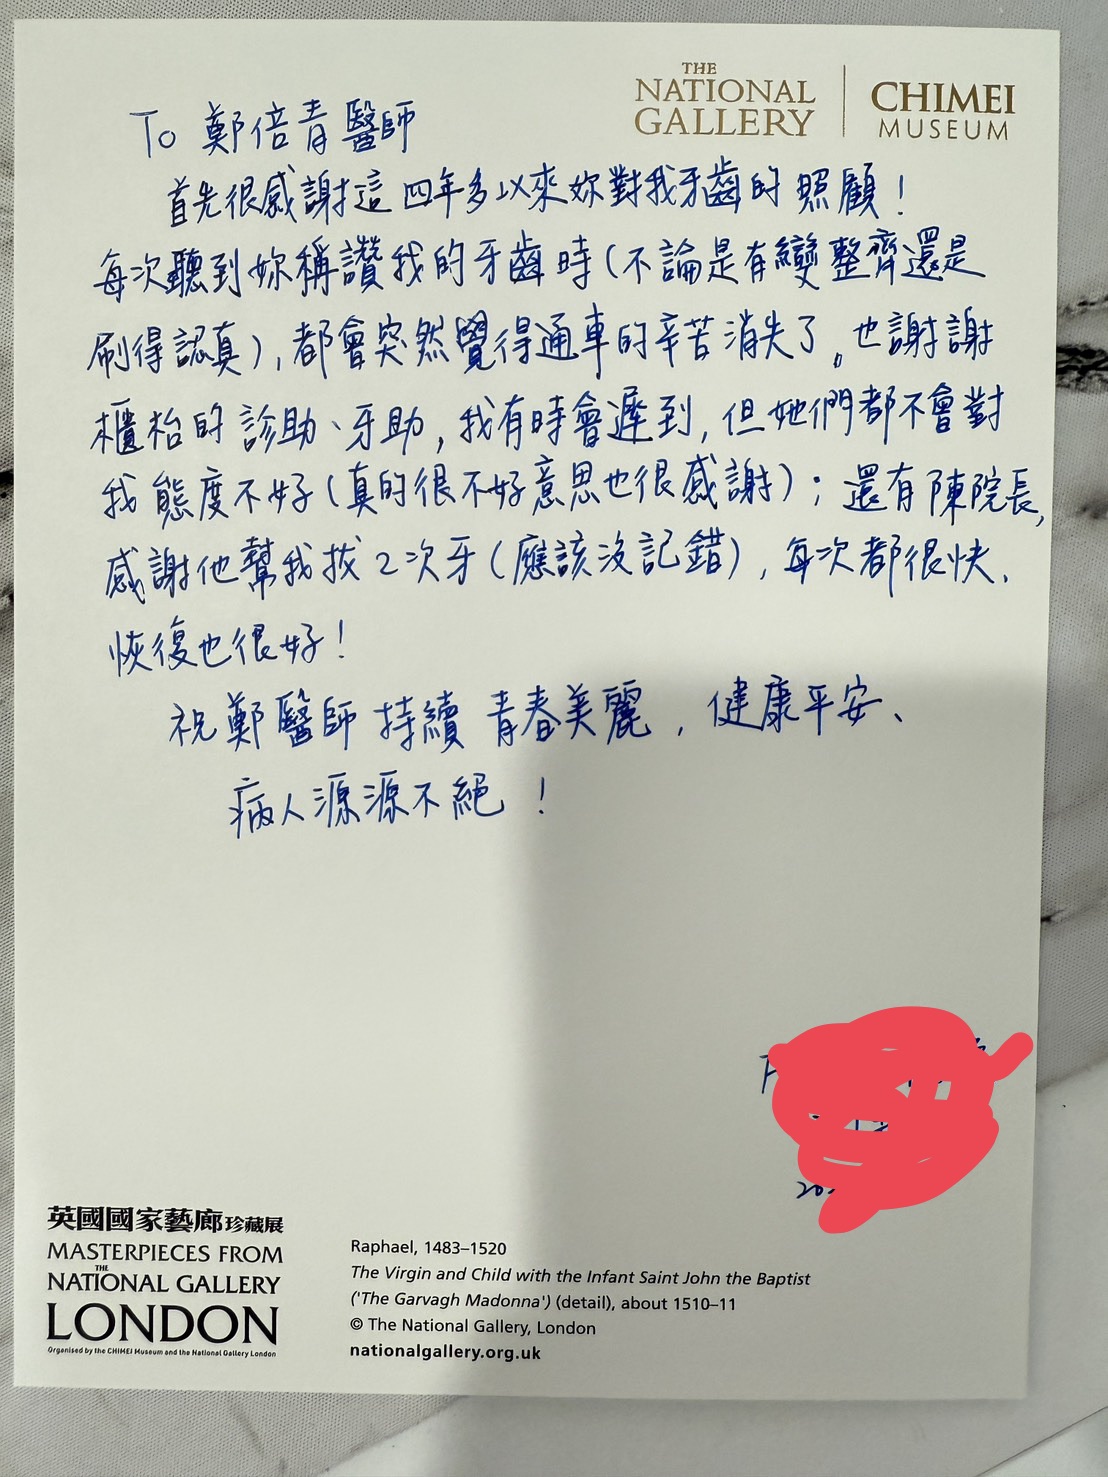 THE
NATIONAL
GALLERY
CHIMEI
MUSEUM
To 鄭倍青醫師
首先很感謝這四年多以來妳對我牙齒的照顧!
每次聽到妳稱讚我的牙齒時(不論是有變整齊還是
刷得認真),都會突然覺得通車的辛苦消失了。也謝謝
櫃枱的診助、牙助,我有時會遲到,但她們都不會對
我態度不好(真的很不好意思也很感謝);還有陳院長,
感謝他幫我拔2次牙(應該沒記錯),每次都很快、
恢復也很好!
祝鄭醫師持續青春美麗,健康平安、
病人源源不絕!
英國國家藝廊珍藏展
MASTERPIECES FROM
THE
NATIONAL GALLERY
LONDON
Organised by the CHIMEI Museum and the National Gallery London
Raphael, 1483–1520
The Virgin and Child with the Infant Saint John the Baptist
('The Garvagh Madonna') (detail), about 1510–11
© The National Gallery, London
nationalgallery.org.uk